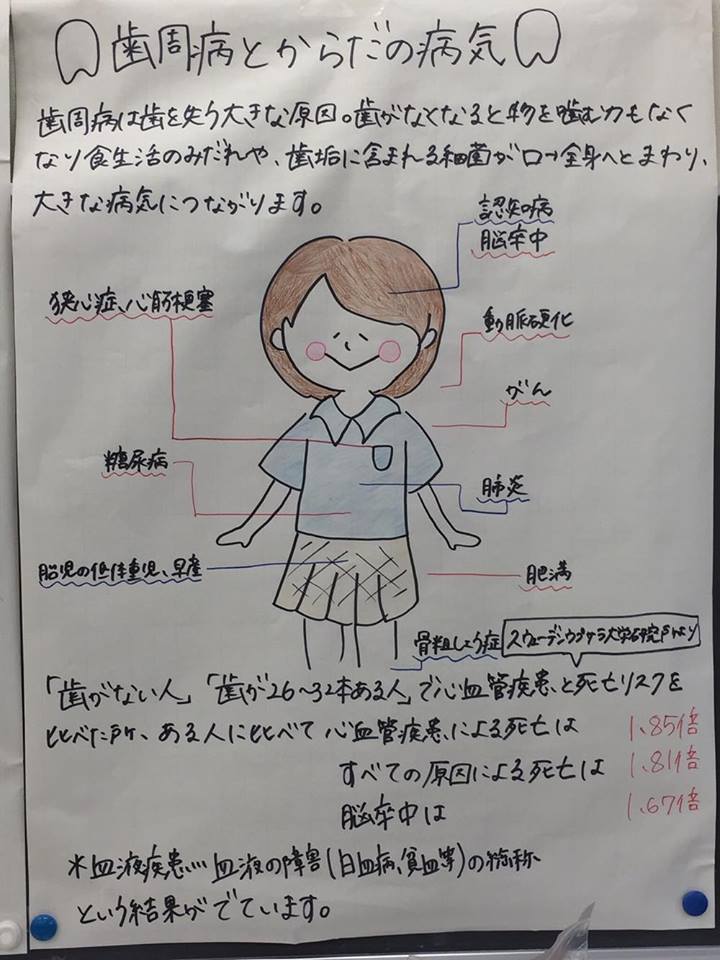 歯周病とからだの病気
歯周病は歯を失う大きな原因。歯がなくなると物を噛む力もなく
なり食生活のみだれや、歯垢に含まれる細菌が口→全身へとまわり、
大きな病気につながります。
認知病
脳卒中
狭心症、心筋梗塞
動脈硬化
がん
糖尿病
肺炎
胎児の低体重児、早産
肥満
骨粗しょう症
スウェーデンウプサラ大学研究所より
「歯がない人」「歯が26〜32本ある人」で心血管疾患と死亡リスクを
比べた所、ある人に比べて 心血管疾患による死亡は 1.85倍
すべての原因による死亡は 1.81倍
脳卒中は 1.67倍
※血液疾患… 血液の障害(白血病、貧血等)の総称
という結果がでています。